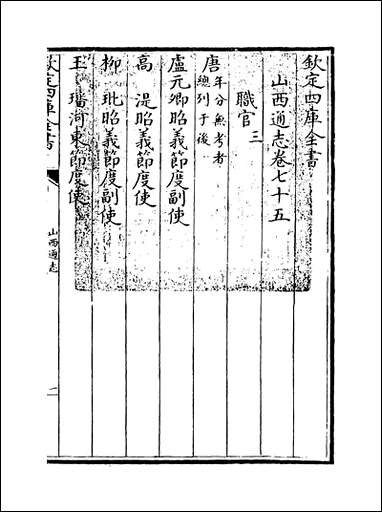 欽定四庫全書
山西通志卷七十五
職官三
唐年分無考者總列于後
盧元卿昭義節度副使
高湜昭義節度使
柳玭昭義節度副使
王璠河東節度使
欽定四庫全書
山西通志